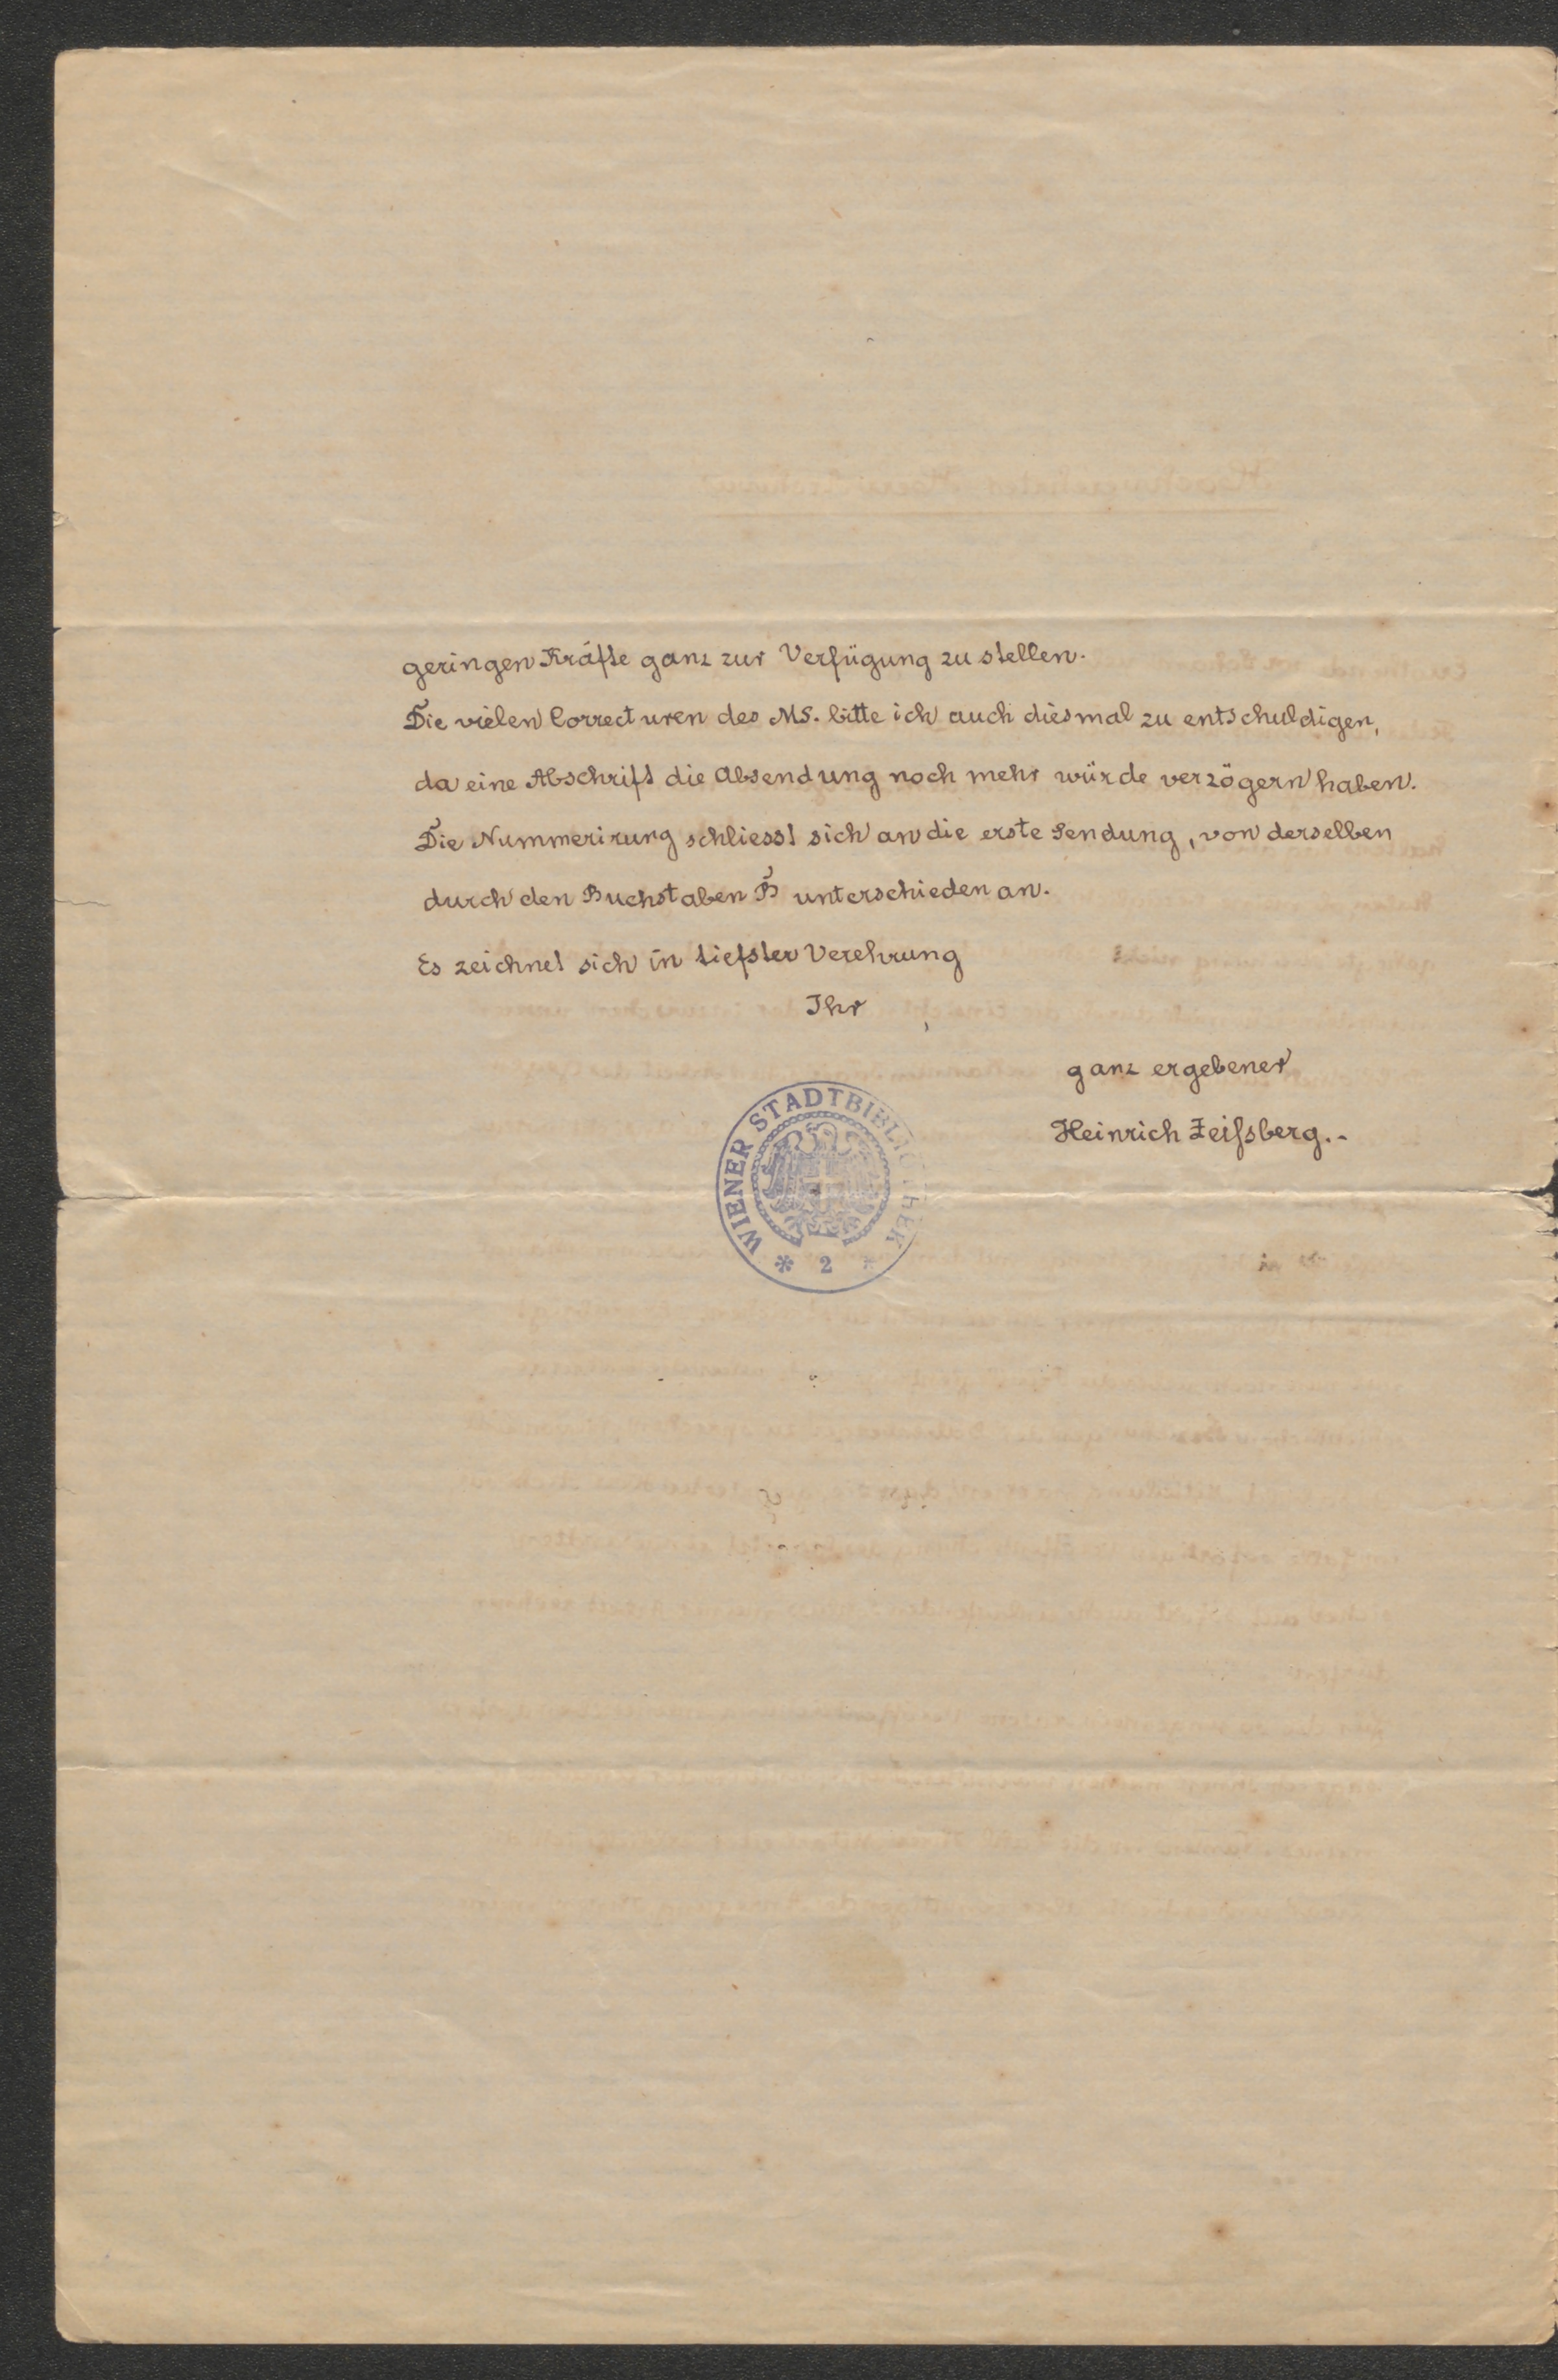 geringen Kräfte ganz zur Verfügung zu stellen.
Die vielen Correcturen des MS. bitte ich auch diesmal zu entschuldigen,
da eine Abschrift die Absendung noch mehr würde verzögern haben.
Die Nummerirung schliesst sich an die erste Sendung, von derselben
durch den Buchstaben B unterschieden an.
Es zeichnet sich in tiefster Verehrung
Ihr
ganz ergebener
Heinrich Zeißsberg.-
WIENER STADTBIBLIOTHEK
* 2 *